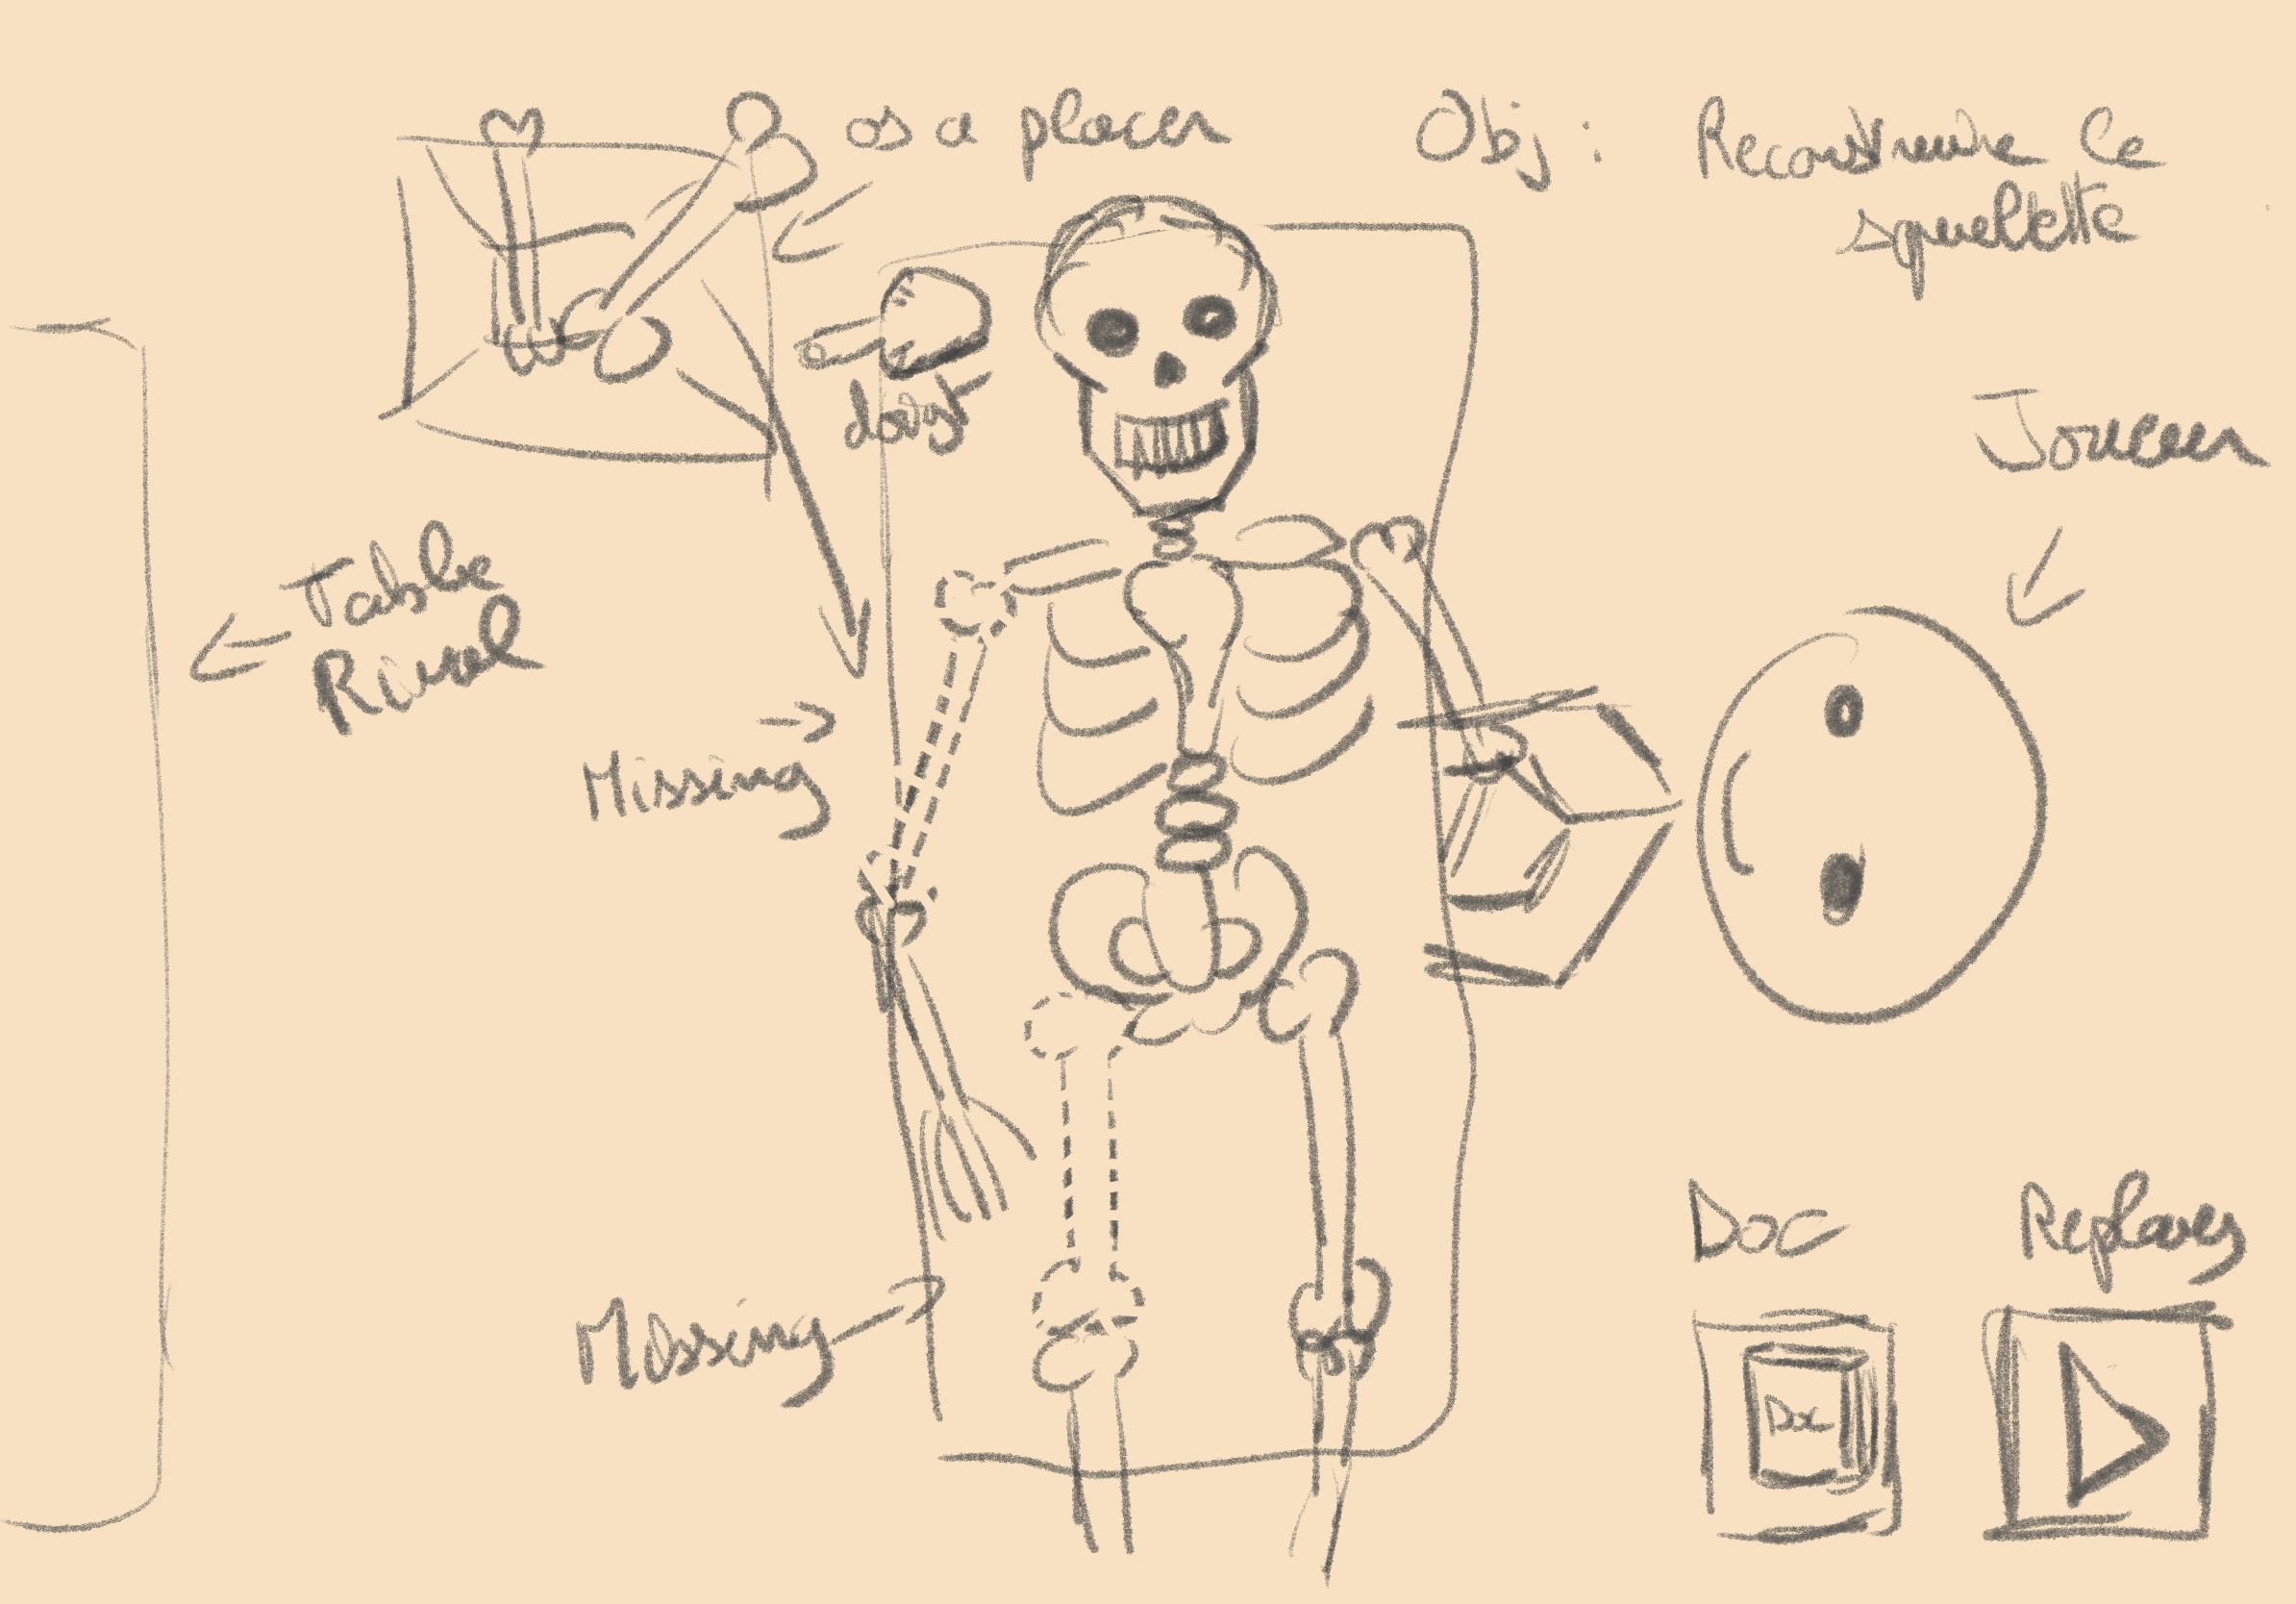 os a placer
Obj : Reconstruire le
squelette
doigt
Joueur
Table
Rival
Missing
Missing
Doc
Replay
Doc